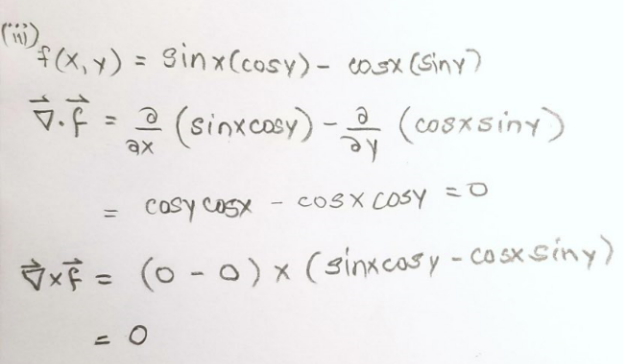 (iii)
f(x, y) = sinx(cosy) - cosx(siny)
∇⃗.f⃗ = ∂/∂x (sinxcosy) - ∂/∂y (cosxsiny)
= cosycosx - cosxcosy = 0
∇⃗xf⃗ = (0 - 0) x (sinxcosy - cosxsiny)
= 0